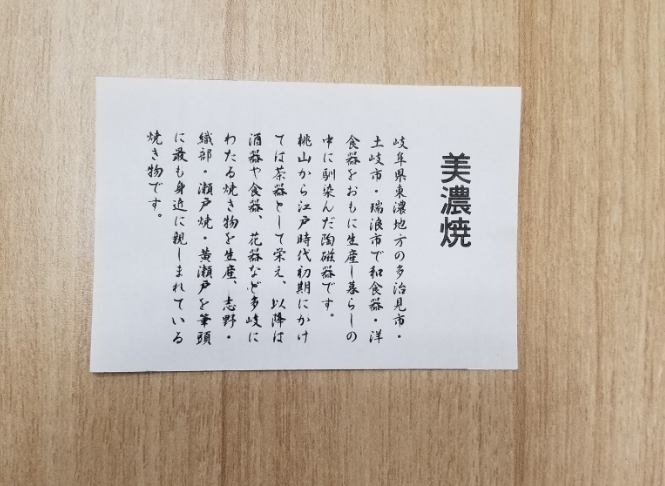 美濃焼
岐阜県東濃地方の多治見市・
土岐市・瑞浪市で和食器・洋
食器をおもに生産し暮らしの
中に馴染んだ陶磁器です。
桃山から江戸時代初期にかけ
ては茶器として栄え、以降は
酒器や食器、花器など多岐に
わたる焼き物を生産、志野・
織部・瀬戸焼・黄瀬戸を筆頭
に最も身近に親しまれている
焼き物です。